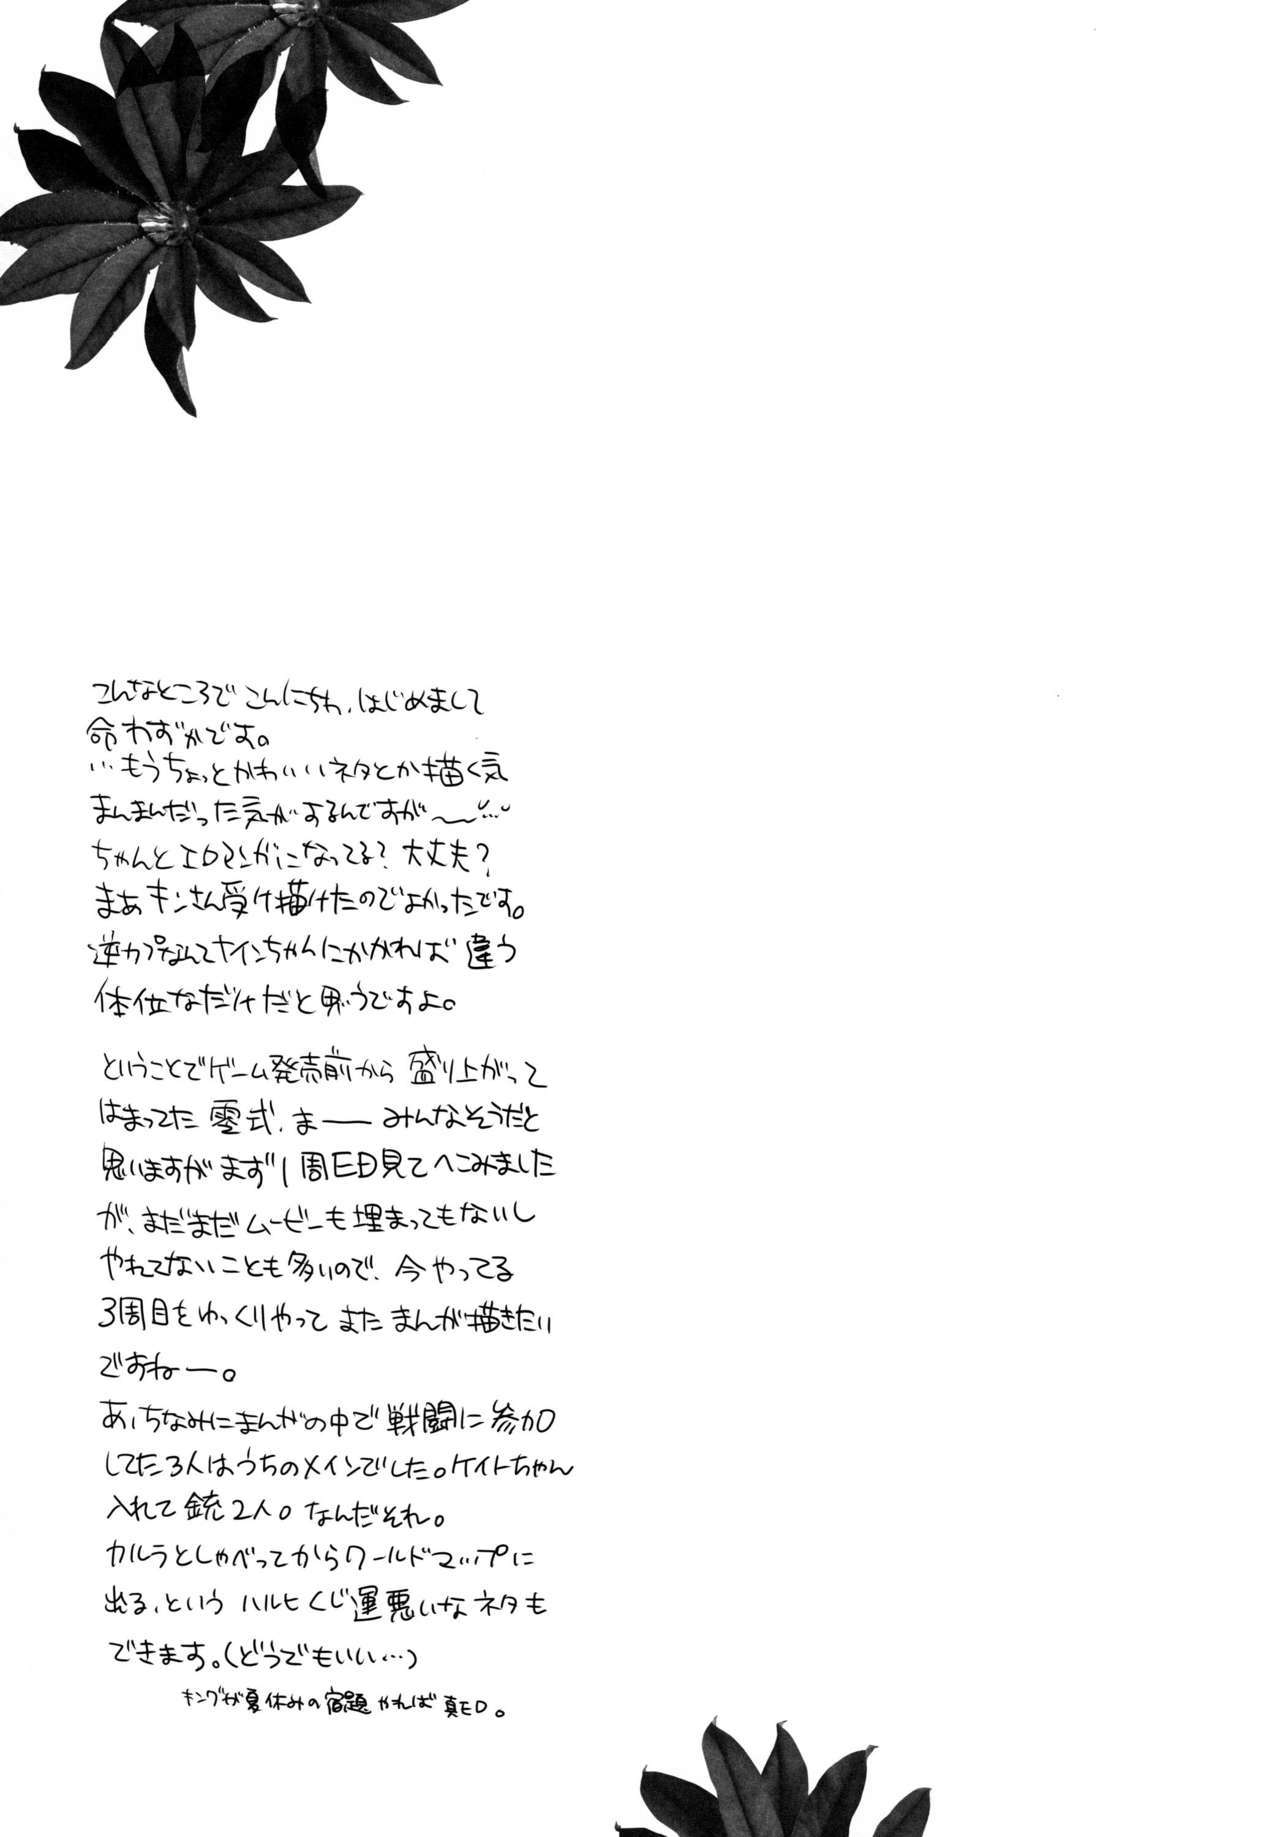 こんなところでこんにちわ、はじめまして
命わずかです。
…もうちょっとかわいいネタとか描く気
まんまんだった気がするんですが〜〜…
ちゃんとエロマンガになってる?大丈夫?
まあキンさん受け描けたのでよかったです。
逆カプなんてナインちゃんにかかれば違う
体位なだけだと思うですよ。
ということでゲーム発売前から盛り上がって
はまってた零式、まーーみんなそうだと
思いますがまず1周ED見てへこみました
が、まだまだムービーも埋まってもないし
やれてないことも多いので、今やってる
3周目をゆっくりやってまたまんが描きたい
ですねー。
あ、ちなみにまんがの中で戦闘に参加
してた3人はうちのメインでした。ケイトちゃん
入れて銃2人。なんだそれ。
カルラとしゃべってからワールドマップに
出る、というハルヒくじ運悪いなネタも
できます。(どうでもいい…)
キングが夏休みの宿題やれば真ED。